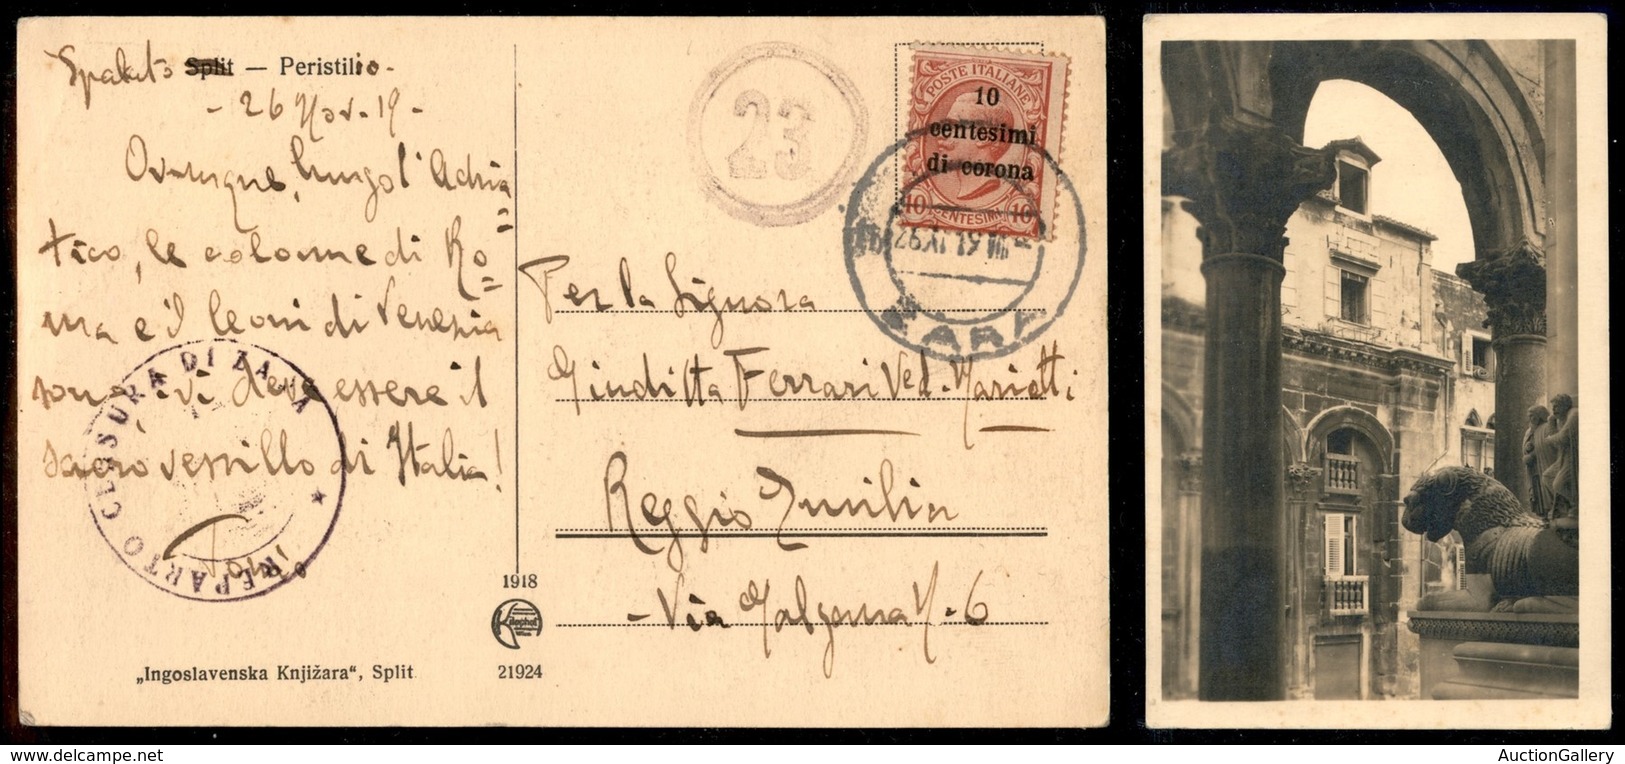 Spalato Split — Peristilio -
- 26 Nov. 19 -
Ovunque, lungo l'Adria
=
tico, le colonne di Ro
=
ma e i leoni di Venezia
sono, ivi deve essere il
sacro vessillo di Italia!
REPARTO CENSURA DI ZARA
1918
Kilophot
Wien
21924
„Ingoslavenska Knjižara“, Split
23
POSTE ITALIANE
10
centesimi
di corona
10 CENTESIMI 10
26 XI 19 VIII
ZARA
Per la Signora
Giuditta Ferrari Ved. Mariotti
Reggio Emilia
- Via N. 6
AuctionGallery